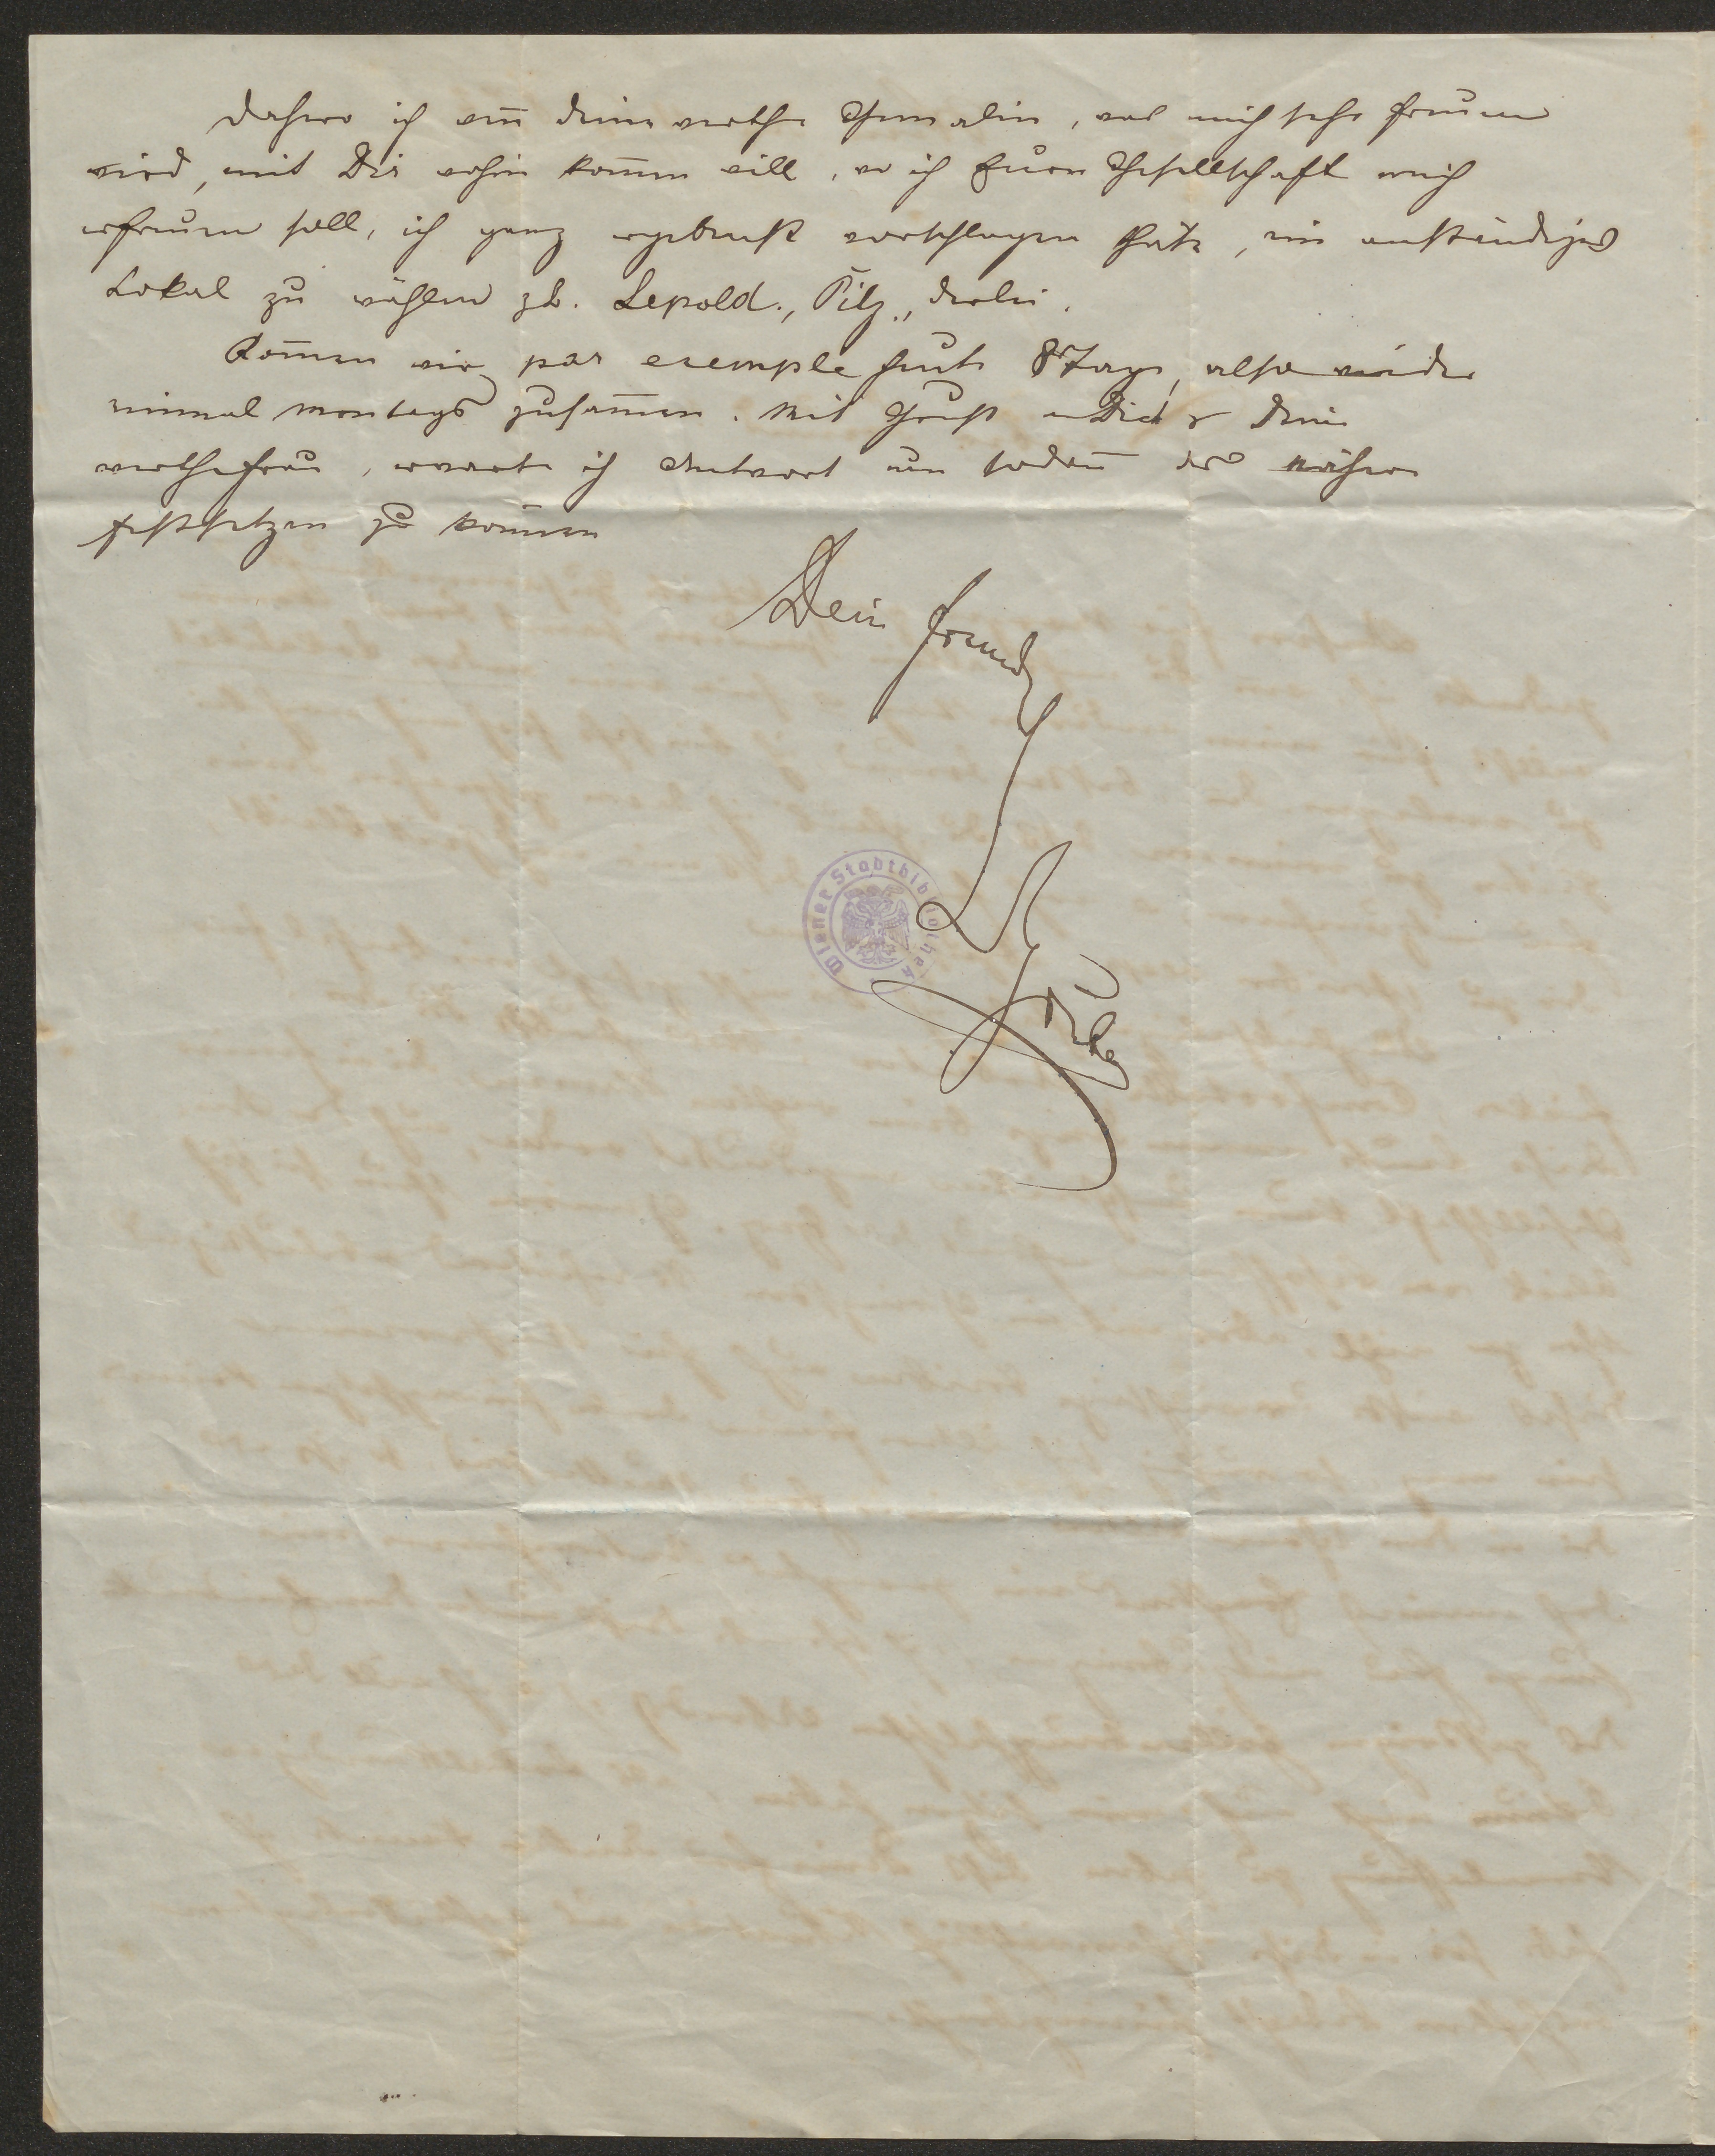 Daher ich wen̄ Deine werthe Gemalin, was mich sehr freuen
wird, mit Dir wohin kom̄en will, wo ich Eurer Gesellschaft mich
erfreuen soll, ich ganz ergebenst vorschlagen thäte, ein anständiges
Lokal zu wählen z.B. Lepold., Pilz.,
Kom̄en wir par exemple heute 8 Tage, also wieder
einmal Montags zusam̄en. Mit Gruß an Dich & Deine
werthe Frau, erwarte ich Antwort um sodan̄ das Nähere
festsetzen zu kön̄en
Dein Freund
Wiener Stadtbibliothek